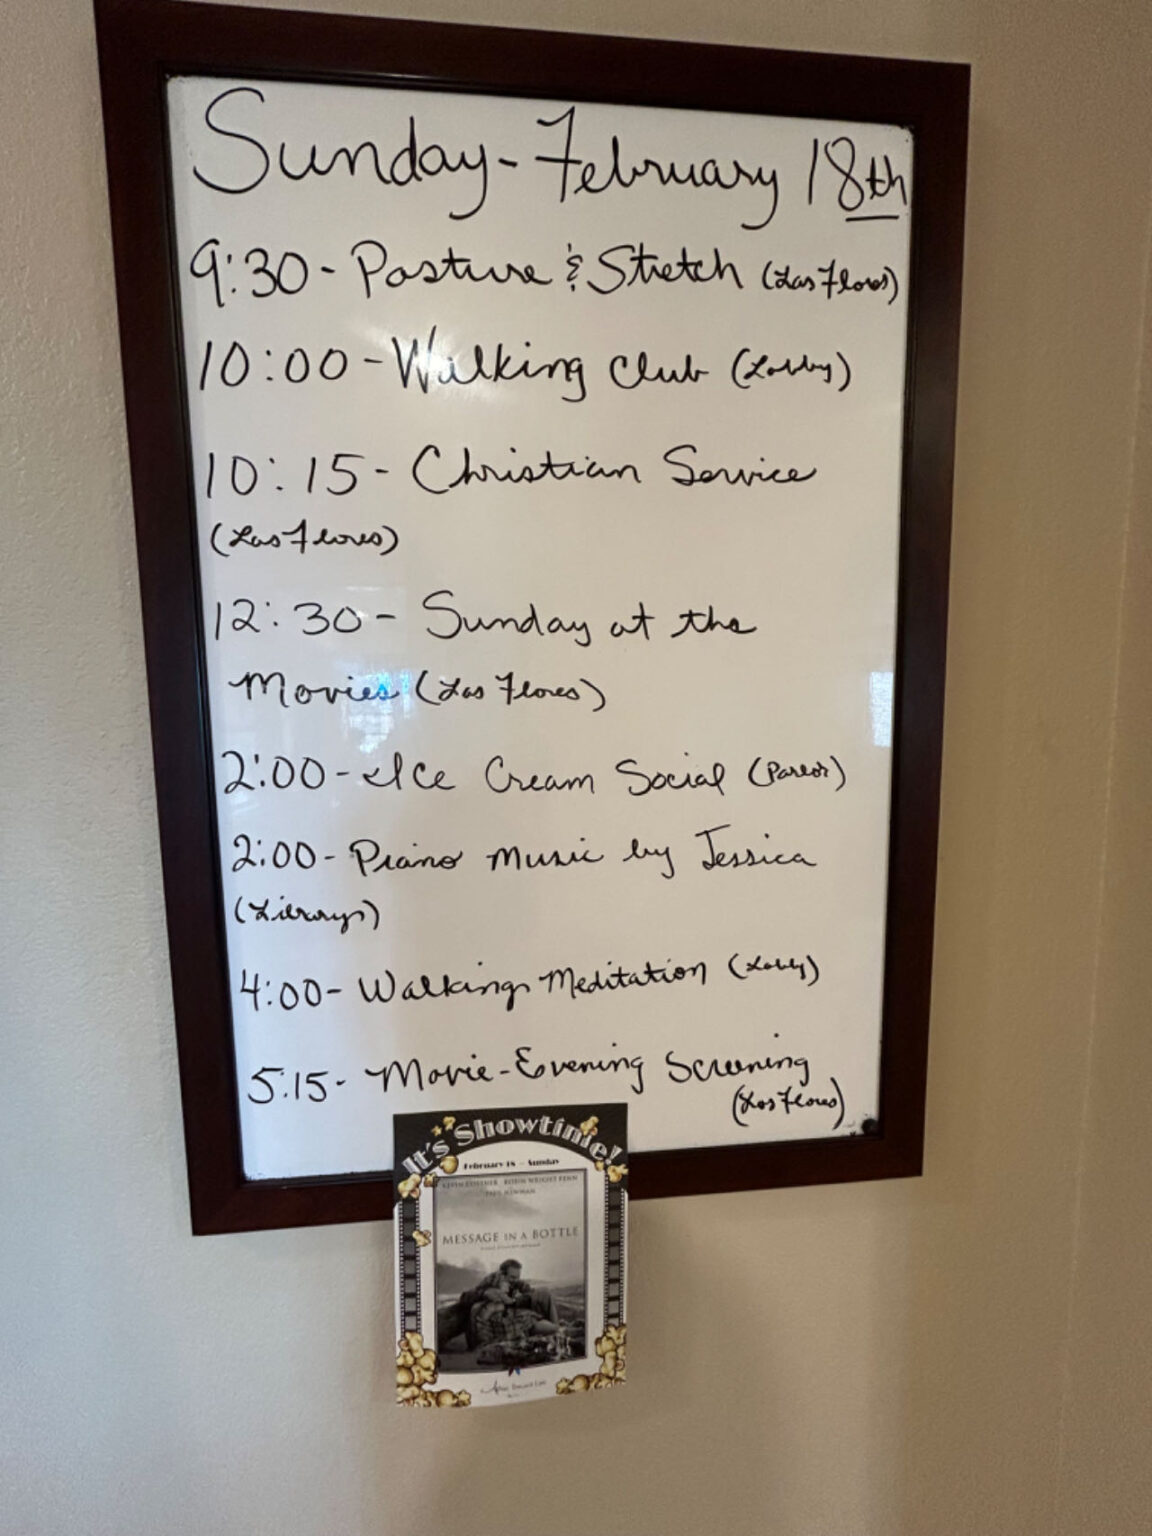 Sunday - February 18th
9:30 - Posture & Stretch (Las Flores)
10:00 - Walking Club (Lobby)
10:15 - Christian Service
(Las Flores)
12:30 - Sunday at the
Movies (Las Flores)
2:00 - Ice Cream Social (Parlor)
2:00 - Piano Music by Jessica
(Library)
4:00 - Walking Meditation (Lobby)
5:15 - Movie - Evening Screening
(Las Flores)
It's Showtime!
February 18 — Sunday
KEVIN COSTNER ROBIN WRIGHT PENN
PAUL NEWMAN
MESSAGE IN A BOTTLE